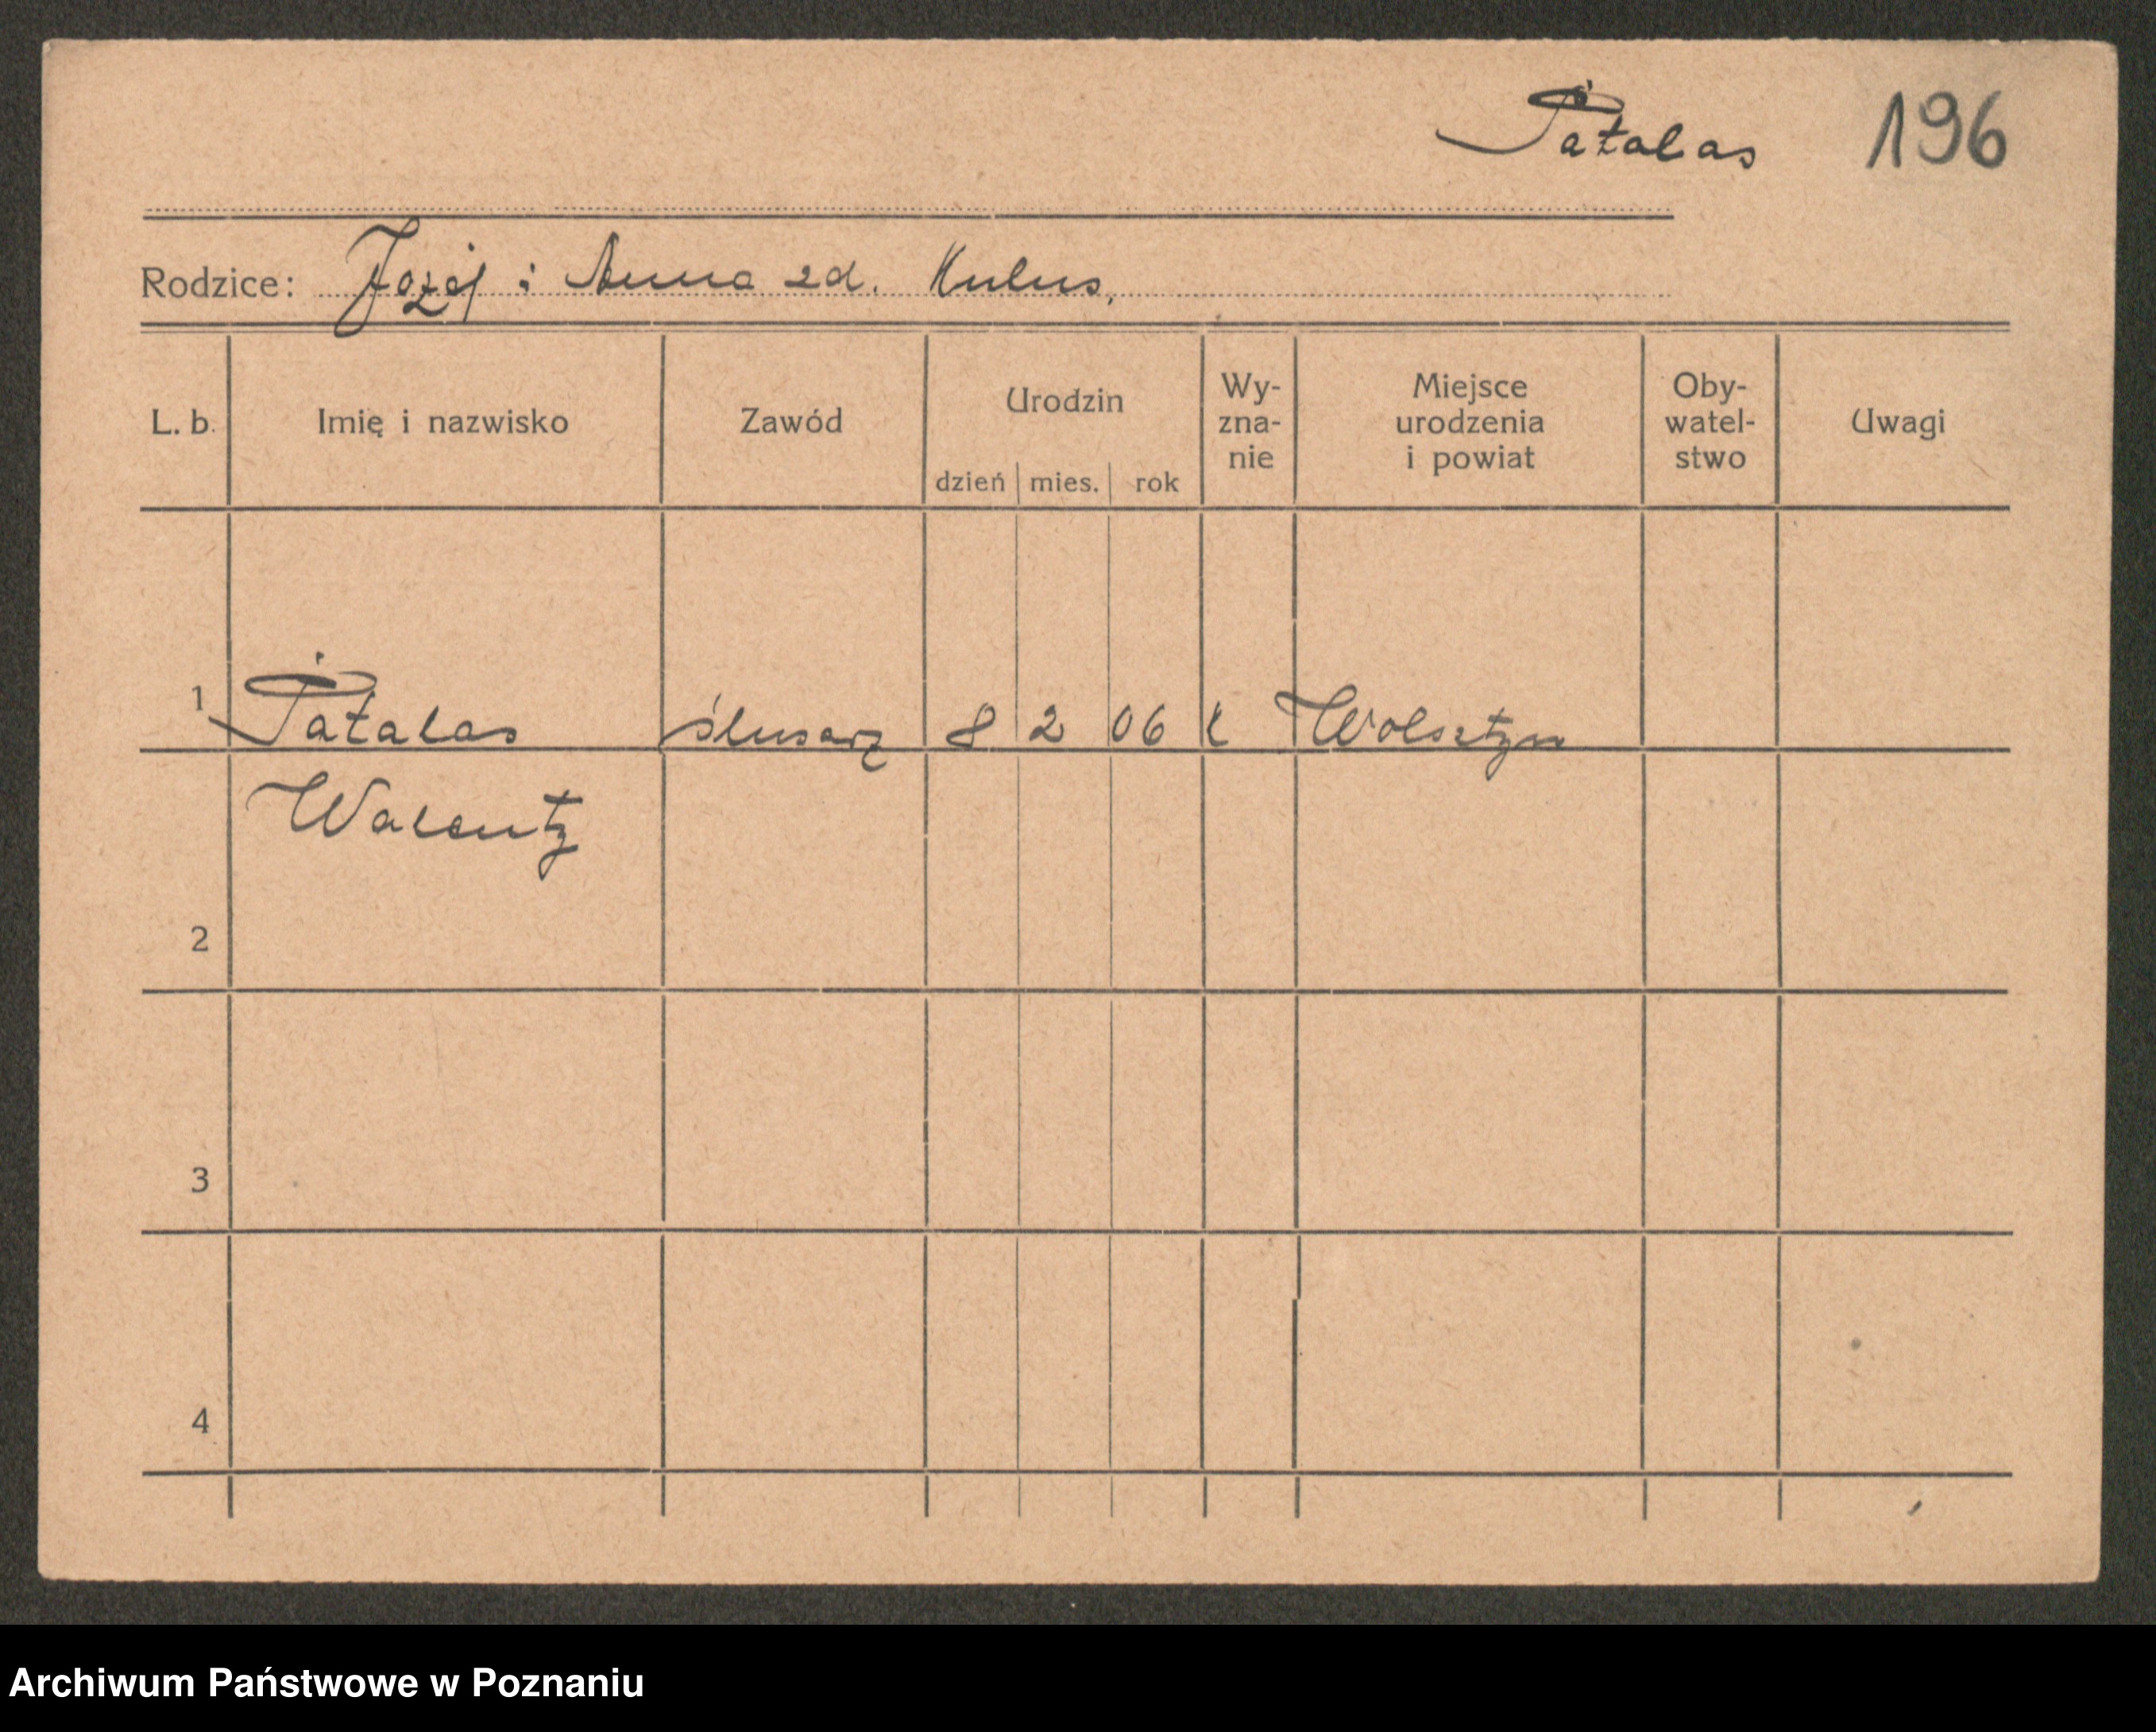 Patalas 196
Rodzice: Józef i Anna zd. Kulus.
L. b. Imię i nazwisko Zawód Urodzin Wy- zna- nie Miejsce urodzenia i powiat Oby- watel- stwo Uwagi
dzień mies. rok
1 Patalas ślusarz 8 2 06 k Wolsztyn
Walenty
2
3
4
Archiwum Państwowe w Poznaniu